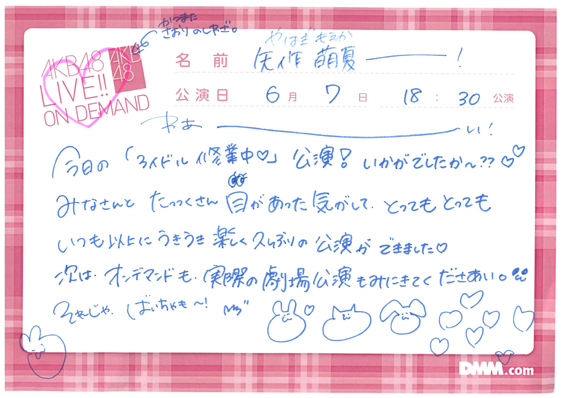 かつまた
さおりのしわざ。
AKB48
AKB
48
LIVE!!
ON DEMAND
やはぎもえか
名前 矢作 萌夏 ー!
公演日 6月7日 18:30公演
わあ ー い!
今日の「アイドル修業中♡」公演!いかがでしたかー??♡♡
みなさんと たっっくさん 目があった気がして、とってもとっても
いつも以上にうきうき楽しく久しぶりの公演ができました♡
次は、オンデマンドも、実際の劇場公演もみにきてくださあい。
それじゃ、ばいちゃも〜!
DMM.com